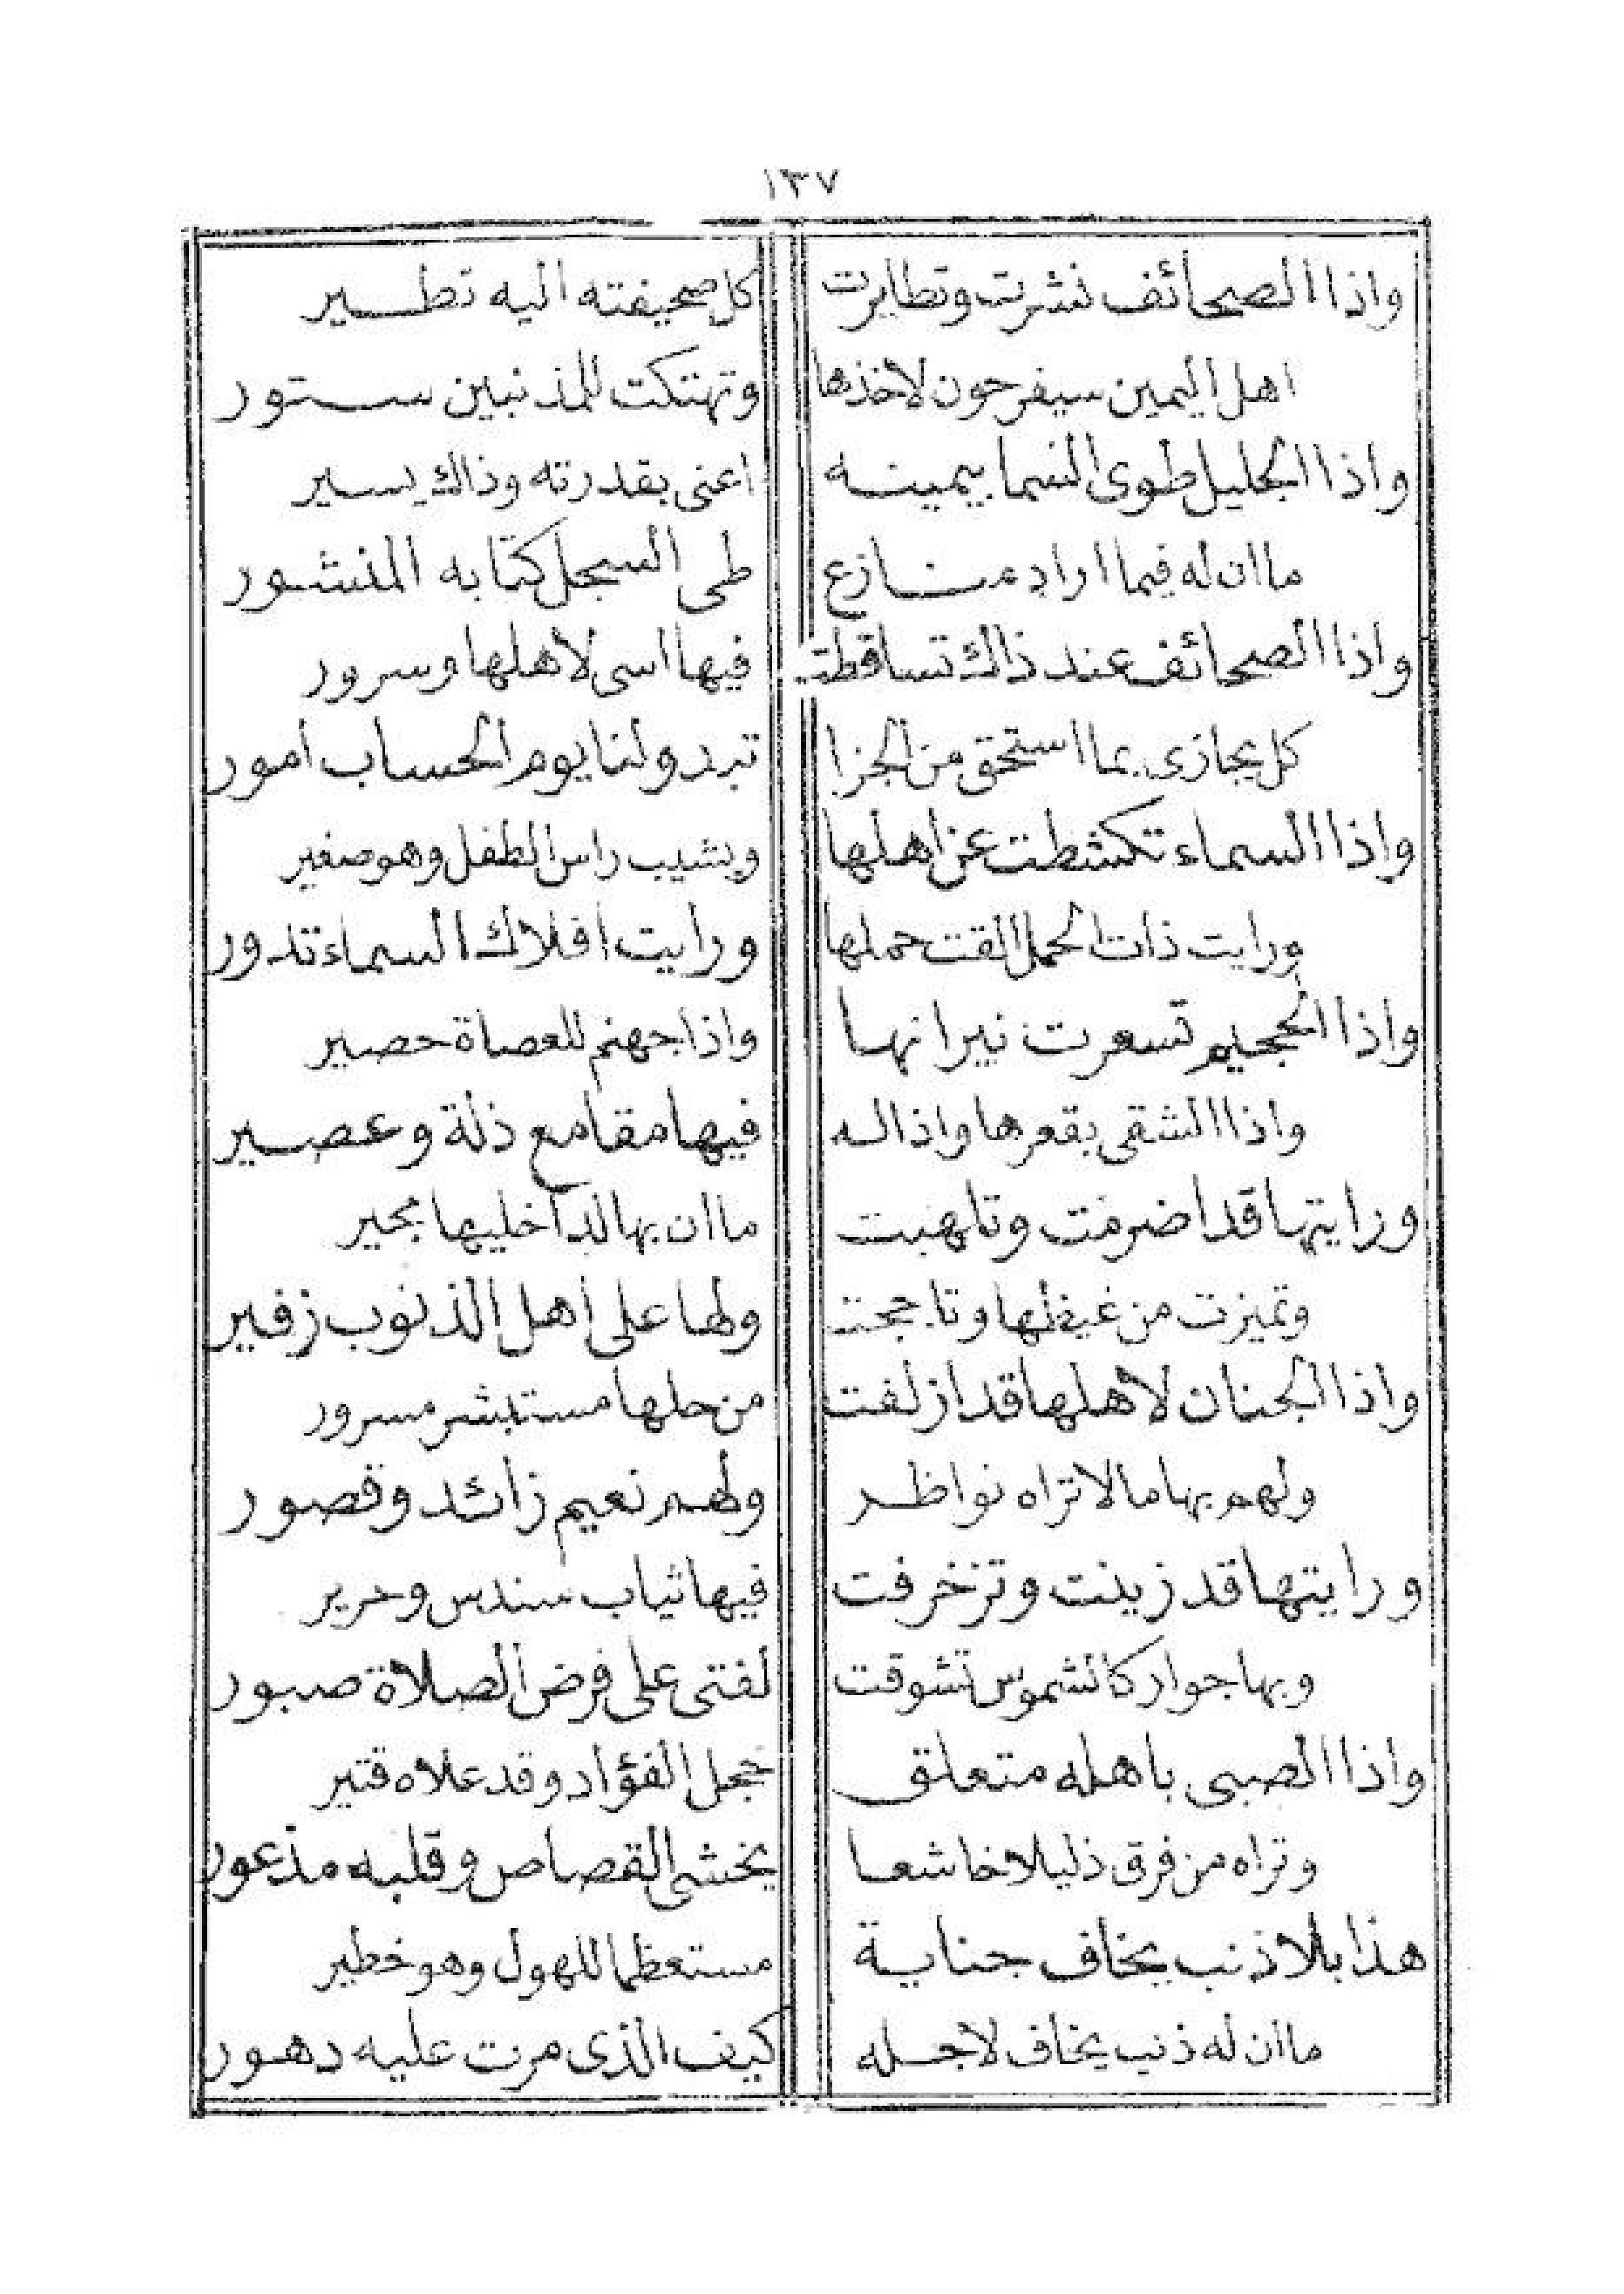 ١٣٧
واذا الصحائف نشرت وتطايرت كل صحيفته اليه تطير
اهل اليمين سيفرحون لاخذها وتهتكت للمذنبين ستور
واذا الجليل طوى السما بيمينه اعنى بقدرته وذالك يسير
ما ان له فيما اراد منازع طى السجل كتابه المنشور
واذا الصحائف عند ذالك تساقطت فيها اسى لاهلها وسرور
كل يجازى بما استحق من الجزا تبدو لنا يوم الحساب امور
واذا السماء تكشطت عن اهلها ويشيب راس الطفل وهو صغير
ورايت ذات الحمل القت حملها ورايت افلاك السماء تدور
واذا الجحيم تسعرت نيرانها واذا جهنم للعصاة حصير
واذا الشقى بقعرها واذا له فيها مقامع ذلة وعصير
ورايتها قد اضرمت وتاهبت ما ان بها لداخليها مجير
وتميزت من غيظها وتاججت ولها على اهل الذنوب زفير
واذا الجنان لاهلها قد ازلفت من حلها مستبشر مسرور
ولهم بها ما لا تراه نواظر ولهم نعيم زائد وقصور
ورايتها قد زينت وتزخرفت فيها ثياب سندس وحرير
وبها جوار كالشموس تشوقت لفتى على فرض الصلاة صبور
واذا الصبى باهله متعلق خجل الفؤاد وقد علاه قتير
وتراه من فرق ذليلا خاشعا يخشى القصاص وقلبه مذعور
هذا بلا ذنب يخاف جناية مستعظما للهول وهو خطير
ما ان له ذنب يخاف لاجله كيف الذى مرت عليه دهور